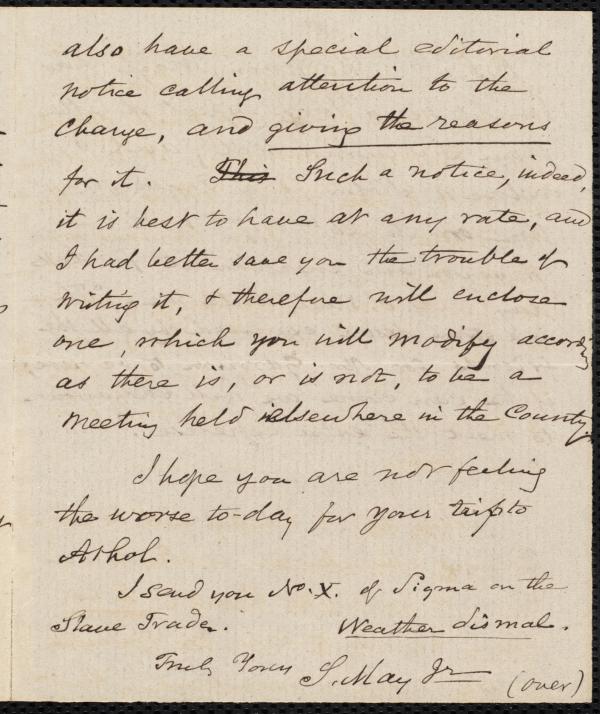 also have a special editorial
notice calling attention to the
change, and giving the reasons
for it. This Such a notice, indeed,
it is best to have at any rate, and
I had better save you the trouble of
writing it, & therefore will enclose
one, which you will modify accordg
as there is, or is not, to be a
meeting held elsewhere in the County.
I hope you are not feeling
the worse to-day for your trip to
Athol.
I send you No. X. of Sigma on the
Slave Trade. Weather dismal.
Truly Yours S. May Jr
(over)